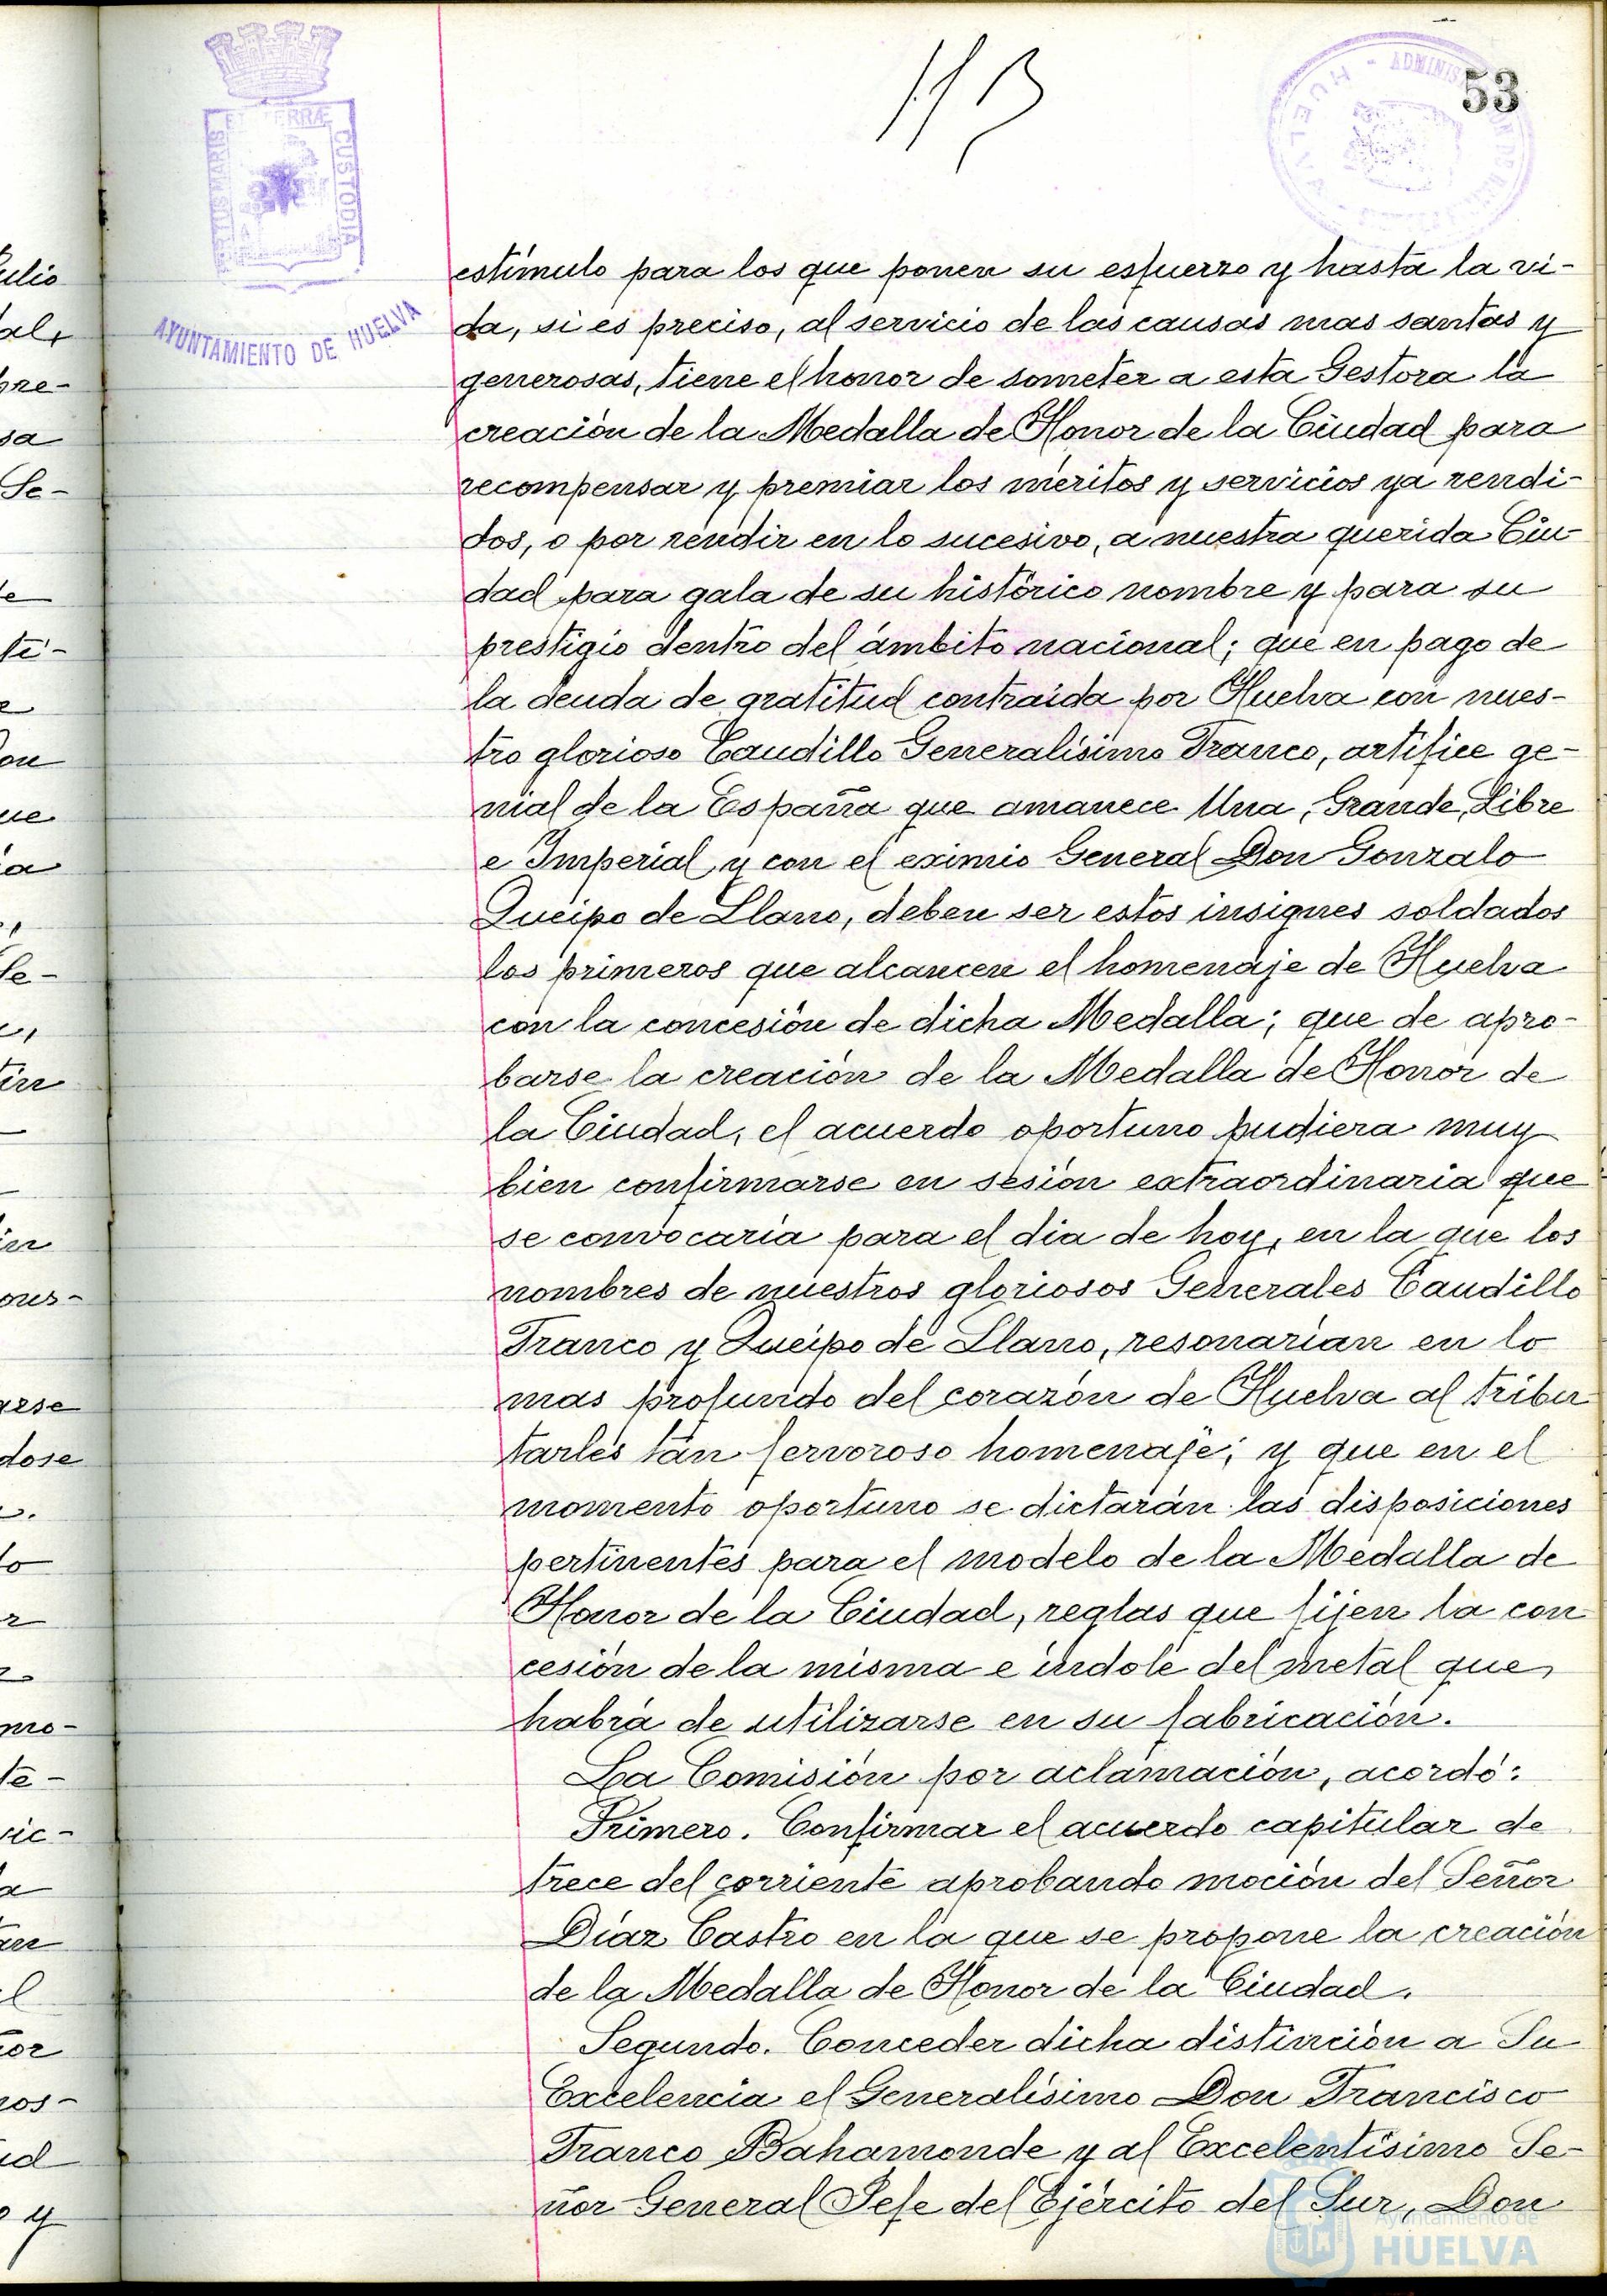 113
53
PORTUS MARIS ET TERRÆ CUSTODIA
AYUNTAMIENTO DE HUELVA
HUELVA - ADMINIS
estímulo para los que ponen su esfuerzo y hasta la vi-
da, si es preciso, al servicio de las causas mas santas y
generosas, tiene el honor de someter a esta Gestora la
creación de la Medalla de Honor de la Ciudad para
recompensar y premiar los méritos y servicios ya rendi-
dos, o por rendir en lo sucesivo, a nuestra querida Ciu-
dad para gala de su histórico nombre y para su
prestigio dentro del ámbito nacional; que en pago de
la deuda de gratitud contraida por Huelva con nues-
tro glorioso Caudillo Generalísimo Franco, artífice ge-
nial de la España que amanece Una, Grande, Libre
e Imperial y con el eximio General Don Gonzalo
Queipo de Llano, deben ser estos insignes soldados
los primeros que alcancen el homenaje de Huelva
con la concesión de dicha Medalla; que de apro-
barse la creación de la Medalla de Honor de
la Ciudad, el acuerdo oportuno pudiera muy
bien confirmarse en sesión extraordinaria que
se convocaria para el dia de hoy, en la que los
nombres de nuestros gloriosos Generales Caudillo
Franco y Queipo de Llano, resonarian en lo
mas profundo del corazón de Huelva al tribu
tarles tan fervoroso homenaje; y que en el
momento oportuno se dictarán las disposiciones
pertinentes para el modelo de la Medalla de
Honor de la Ciudad, reglas que fijen la con
cesión de la misma e índole del metal que
habrá de utilizarse en su fabricación.
La Comisión por aclamación, acordó:
Primero. Confirmar el acuerdo capitular de
trece del corriente aprobando moción del Señor
Díaz Castro en la que se propone la creación
de la Medalla de Honor de la Ciudad.
Segundo. Conceder dicha distinción a Su
Excelencia el Generalísimo Don Francisco
Franco Bahamonde y al Excelentísimo Se-
ñor General Jefe del Ejército del Sur, Don
Ayuntamiento de
HUELVA